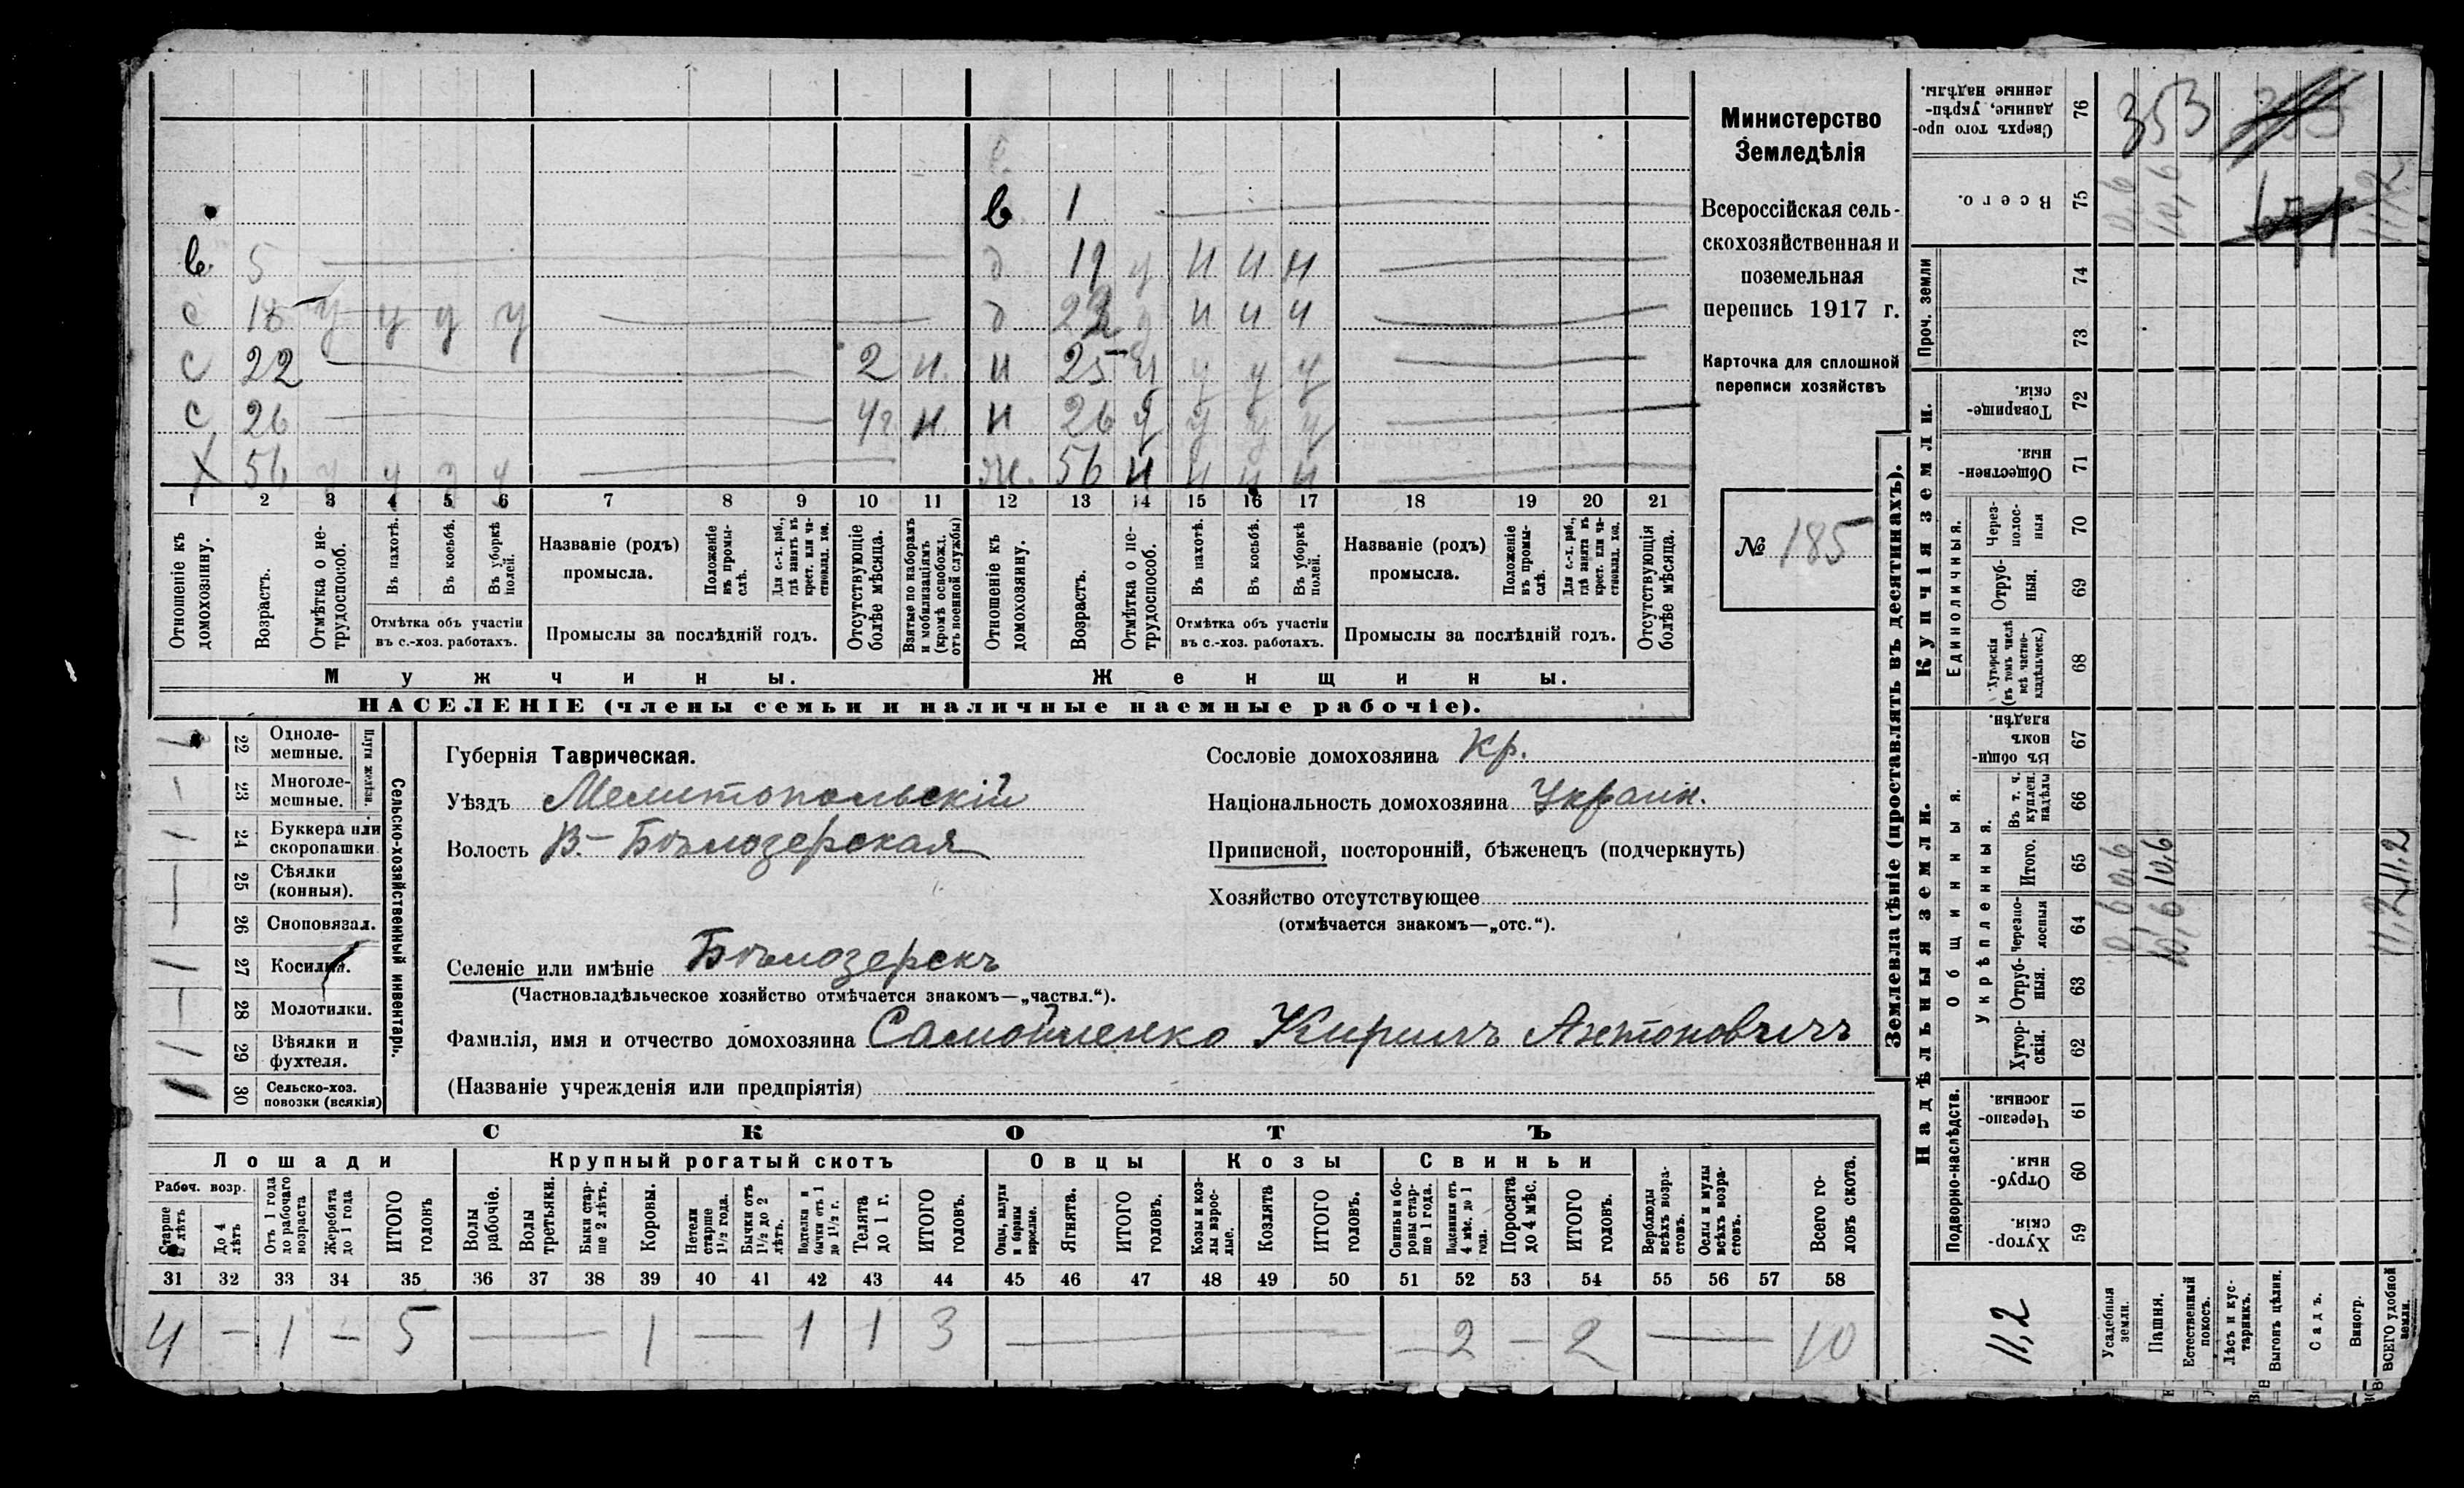 Министерство
Земледѣлія
Всероссійская сель-
скохозяйственная и
поземельная
перепись 1917 г.
Карточка для сплошной
переписи хозяйствъ
№ 185
в 1
в 5 д 19 у н н н
с 18 у у у у д 22 у н н н
с 22 2 н. н 25 н у у у
с 26 4 г н н 26 у у у у
х 56 у у у у ж. 56 н н н н
1 2 3 4 5 6 7 8 9 10 11 12 13 14 15 16 17 18 19 20 21
Отношеніе къ домохозяину.
Возрастъ.
Отмѣтка о не-трудоспособ.
Въ пахотѣ.
Въ косьбѣ.
Въ уборкѣ полей.
Отмѣтка объ участіи
въ с.-хоз. работахъ.
Названіе (родъ)
промысла.
Положеніе въ промы-слѣ.
Для с.-х. раб., гдѣ занятъ въ крест. или ча-стновлад. хоз.
Промыслы за послѣдній годъ.
Отсутствующіе болѣе мѣсяца.
Взятые по наборамъ и мобилизаціямъ (кромѣ освобожд. отъ военной службы)
Отношеніе къ домохозяину.
Возрастъ.
Отмѣтка о не-трудоспособ.
Въ пахотѣ.
Въ косьбѣ.
Въ уборкѣ полей.
Отмѣтка объ участіи
въ с.-хоз. работахъ.
Названіе (родъ)
промысла.
Положеніе въ промы-слѣ.
Для с.-х. раб., гдѣ занята въ крест. или ча-стновлад. хоз.
Промыслы за послѣдній годъ.
Отсутствующія болѣе мѣсяца.
Мужчины. Женщины.
НАСЕЛЕНІЕ (члены семьи и наличные наемные рабочіе).
Сельско-хозяйственный инвентарь.
Плуги желѣзн.
22 Одноле-мешные. 1
23 Многоле-мешные. —
24 Буккера или скоропашки 1
25 Сѣялки (конныя). —
26 Сноповязал. —
27 Косилки. 1
28 Молотилки. —
29 Вѣялки и фухтеля. 1
30 Сельско-хоз. повозки (всякія) 1
Губернія Таврическая.
Уѣздъ Мелитопольскій
Волость В.-Бѣлозерская
Селеніе или имѣніе Бѣлозерскъ
(Частновладѣльческое хозяйство отмѣчается знакомъ—„частвл.“).
Сословіе домохозяина Кр.
Національность домохозяина Украин.
Приписной, посторонній, бѣженецъ (подчеркнуть)
Хозяйство отсутствующее
(отмѣчается знакомъ—„отс.“).
Фамилія, имя и отчество домохозяина Самойленко Кирилъ Антоновичъ
(Названіе учрежденія или предпріятія)
СКОТЪ
Лошади Крупный рогатый скотъ Овцы Козы Свиньи
Рабоч. возр.
Старше 4 лѣтъ
До 4 лѣтъ
Отъ 1 года до рабочаго возраста
Жеребята до 1 года
ИТОГО головъ
Волы рабочіе.
Волы третьяки.
Быки стар-ше 2 лѣтъ.
Коровы.
Нетели старше 1½ года.
Бычки отъ 1½ до 2 лѣтъ.
Подтелки и бычки отъ 1 до 1½ г.
Телята до 1 г.
ИТОГО головъ.
Овцы, валухи и бараны взрослые.
Ягнята.
ИТОГО головъ.
Козы и коз-лы взрос-лые.
Козлята
ИТОГО головъ.
Свиньи и бо-ровы стар-ше 1 года.
Подсвинки отъ 4 мѣс. до 1 года.
Поросята до 4 мѣс.
ИТОГО головъ.
Верблюды всѣхъ возра-стовъ.
Ослы и мулы всѣхъ возра-стовъ.
Всего го-ловъ скота.
31 32 33 34 35 36 37 38 39 40 41 42 43 44 45 46 47 48 49 50 51 52 53 54 55 56 57 58
4 — 1 — 5 — 1 — 1 1 3 — — 2 — 2 — 10
Землевладѣніе (проставлять въ десятинахъ).
Купчія земли.
Надѣльныя земли.
Сверхъ того про-данные, укрѣп-ленные надѣлы. 76 353
Всего. 75 10,6 10,6 11,2
Проч. земли 74 73
Товарище-скія. 72
Обществен-ныя. 71
Единоличныя.
Через-полос-ныя 70
Отруб-ныя. 69
Хуторскія (въ томъ числѣ всѣ частно-владѣльческ.) 68
Общинныя.
Въ общин-номъ владѣн. 67
Укрѣпленныя.
Въ т. ч. куплен. надѣлы 66
Итого. 65 10,6 10,6 11,2
Черезпо-лосныя 64 10,6 10,6 11,2
Отруб-ныя. 63
Хутор-скія. 62
Подворно-наслѣдств.
Черезпо-лосныя. 61
Отруб-ныя. 60
Хутор-скія. 59
11,2
Усадебныя земли.
Пашня.
Естественный покосъ.
Лѣсъ и кус-тарникъ.
Выгонъ цѣлин.
Садъ.
Виногр.
ВСЕГО удобной земли.